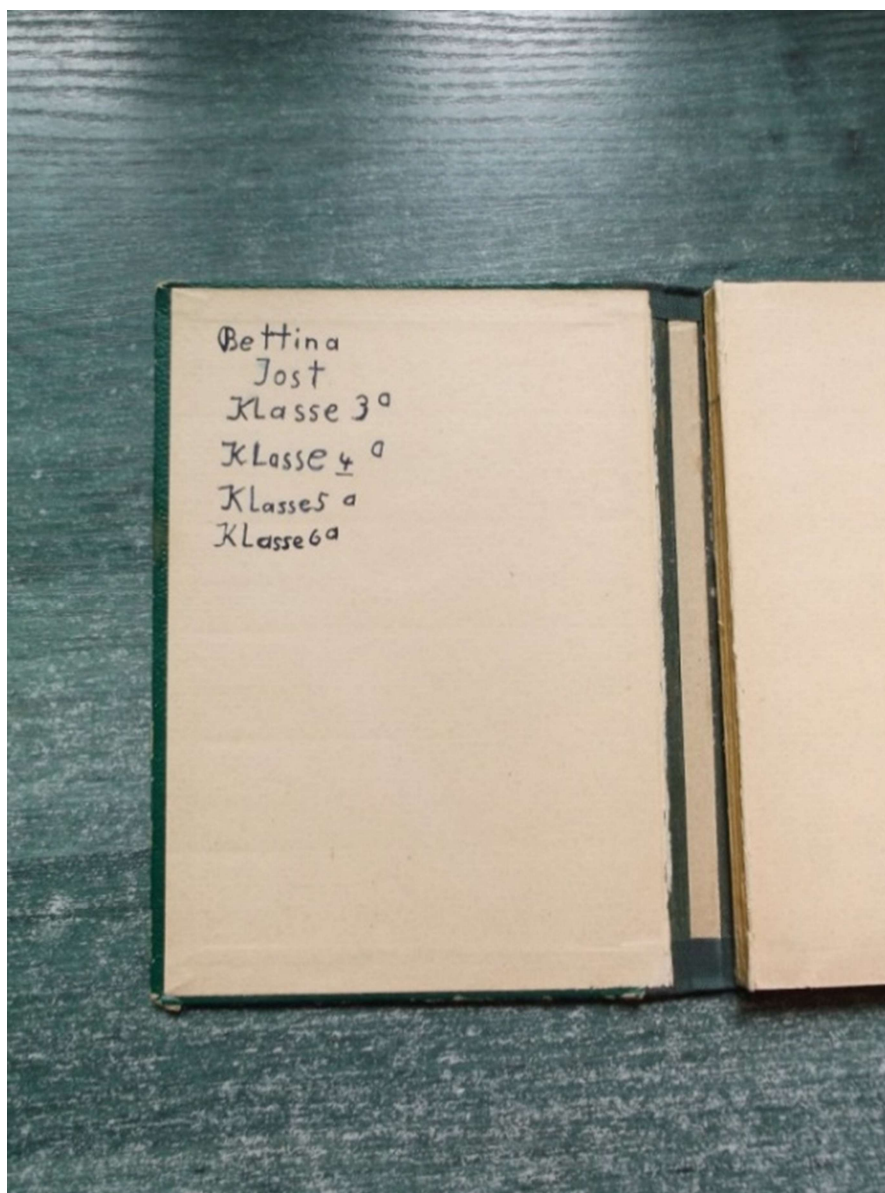 Bettina
Jost
Klasse 3a
Klasse 4 a
Klasse5 a
Klasse6a